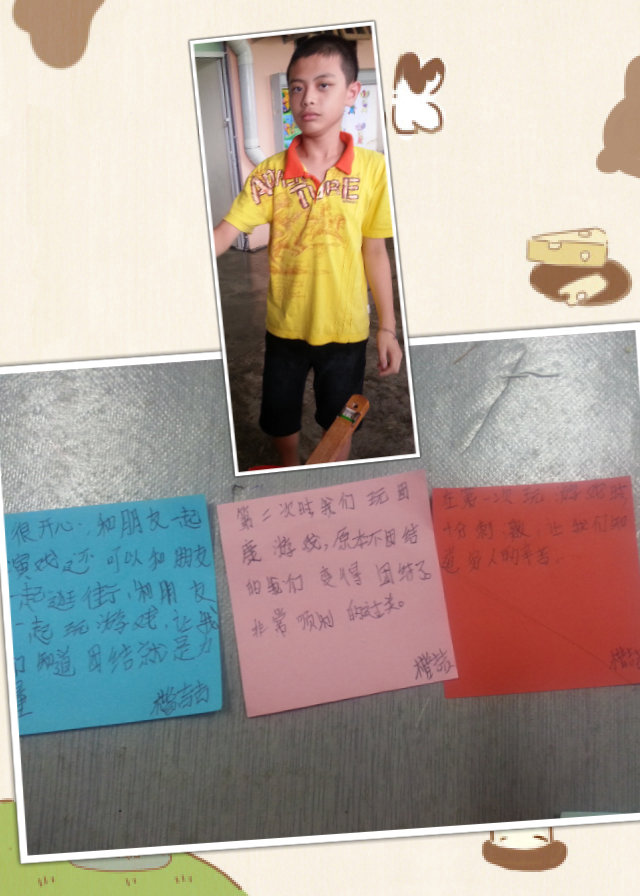 很开心,和朋友一起
演戏之还可以和朋友
一起逛街,和朋友
一起玩游戏,让我
们知道团结就是力
量
楷喆
第二次时我们玩团
康游戏,原本不团结
的我们变得团结了
非常顺利的过关。
楷喆
在第一次玩游戏时
十分刺激,让我们知
道盲人的辛苦。
楷喆